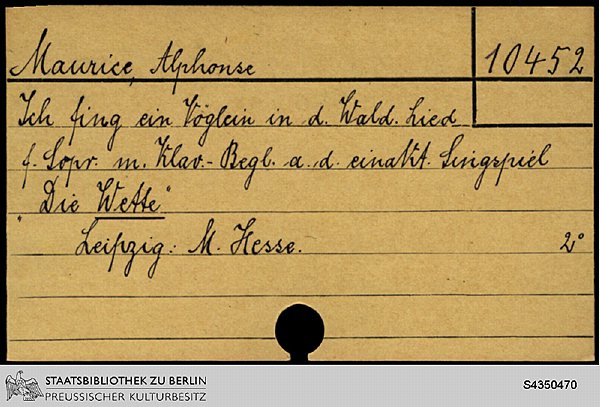 Maurice, Alphonse
10452
Ich fing ein Vöglein in d. Wald. Lied
f. Sopr. m. Klav.-Begl. a. d. einakt. Singspiel
"Die Wette"
Leipzig: M. Hesse. 2°
STAATSBIBLIOTHEK ZU BERLIN
PREUSSISCHER KULTURBESITZ
S4350470